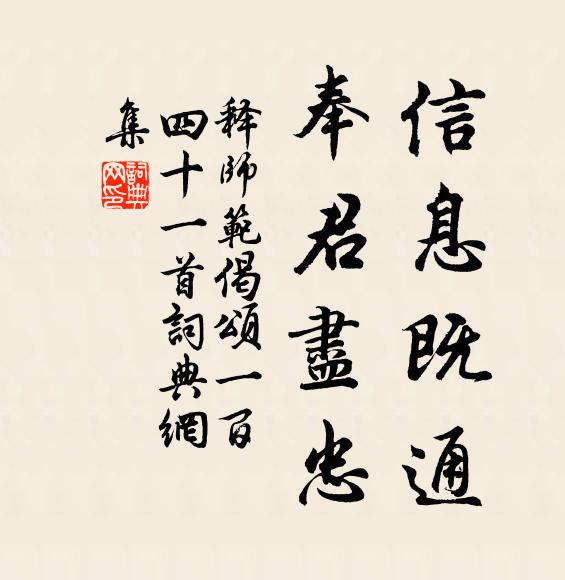 信息既通
奉君盡忠
释師範偈頌一百
四十一首詞典網
集
詞典
网